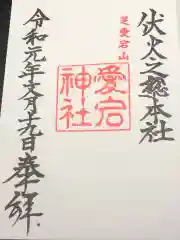 伏火之総本社
芝愛宕山
愛宕神社
令和元年文月十九日奉拝